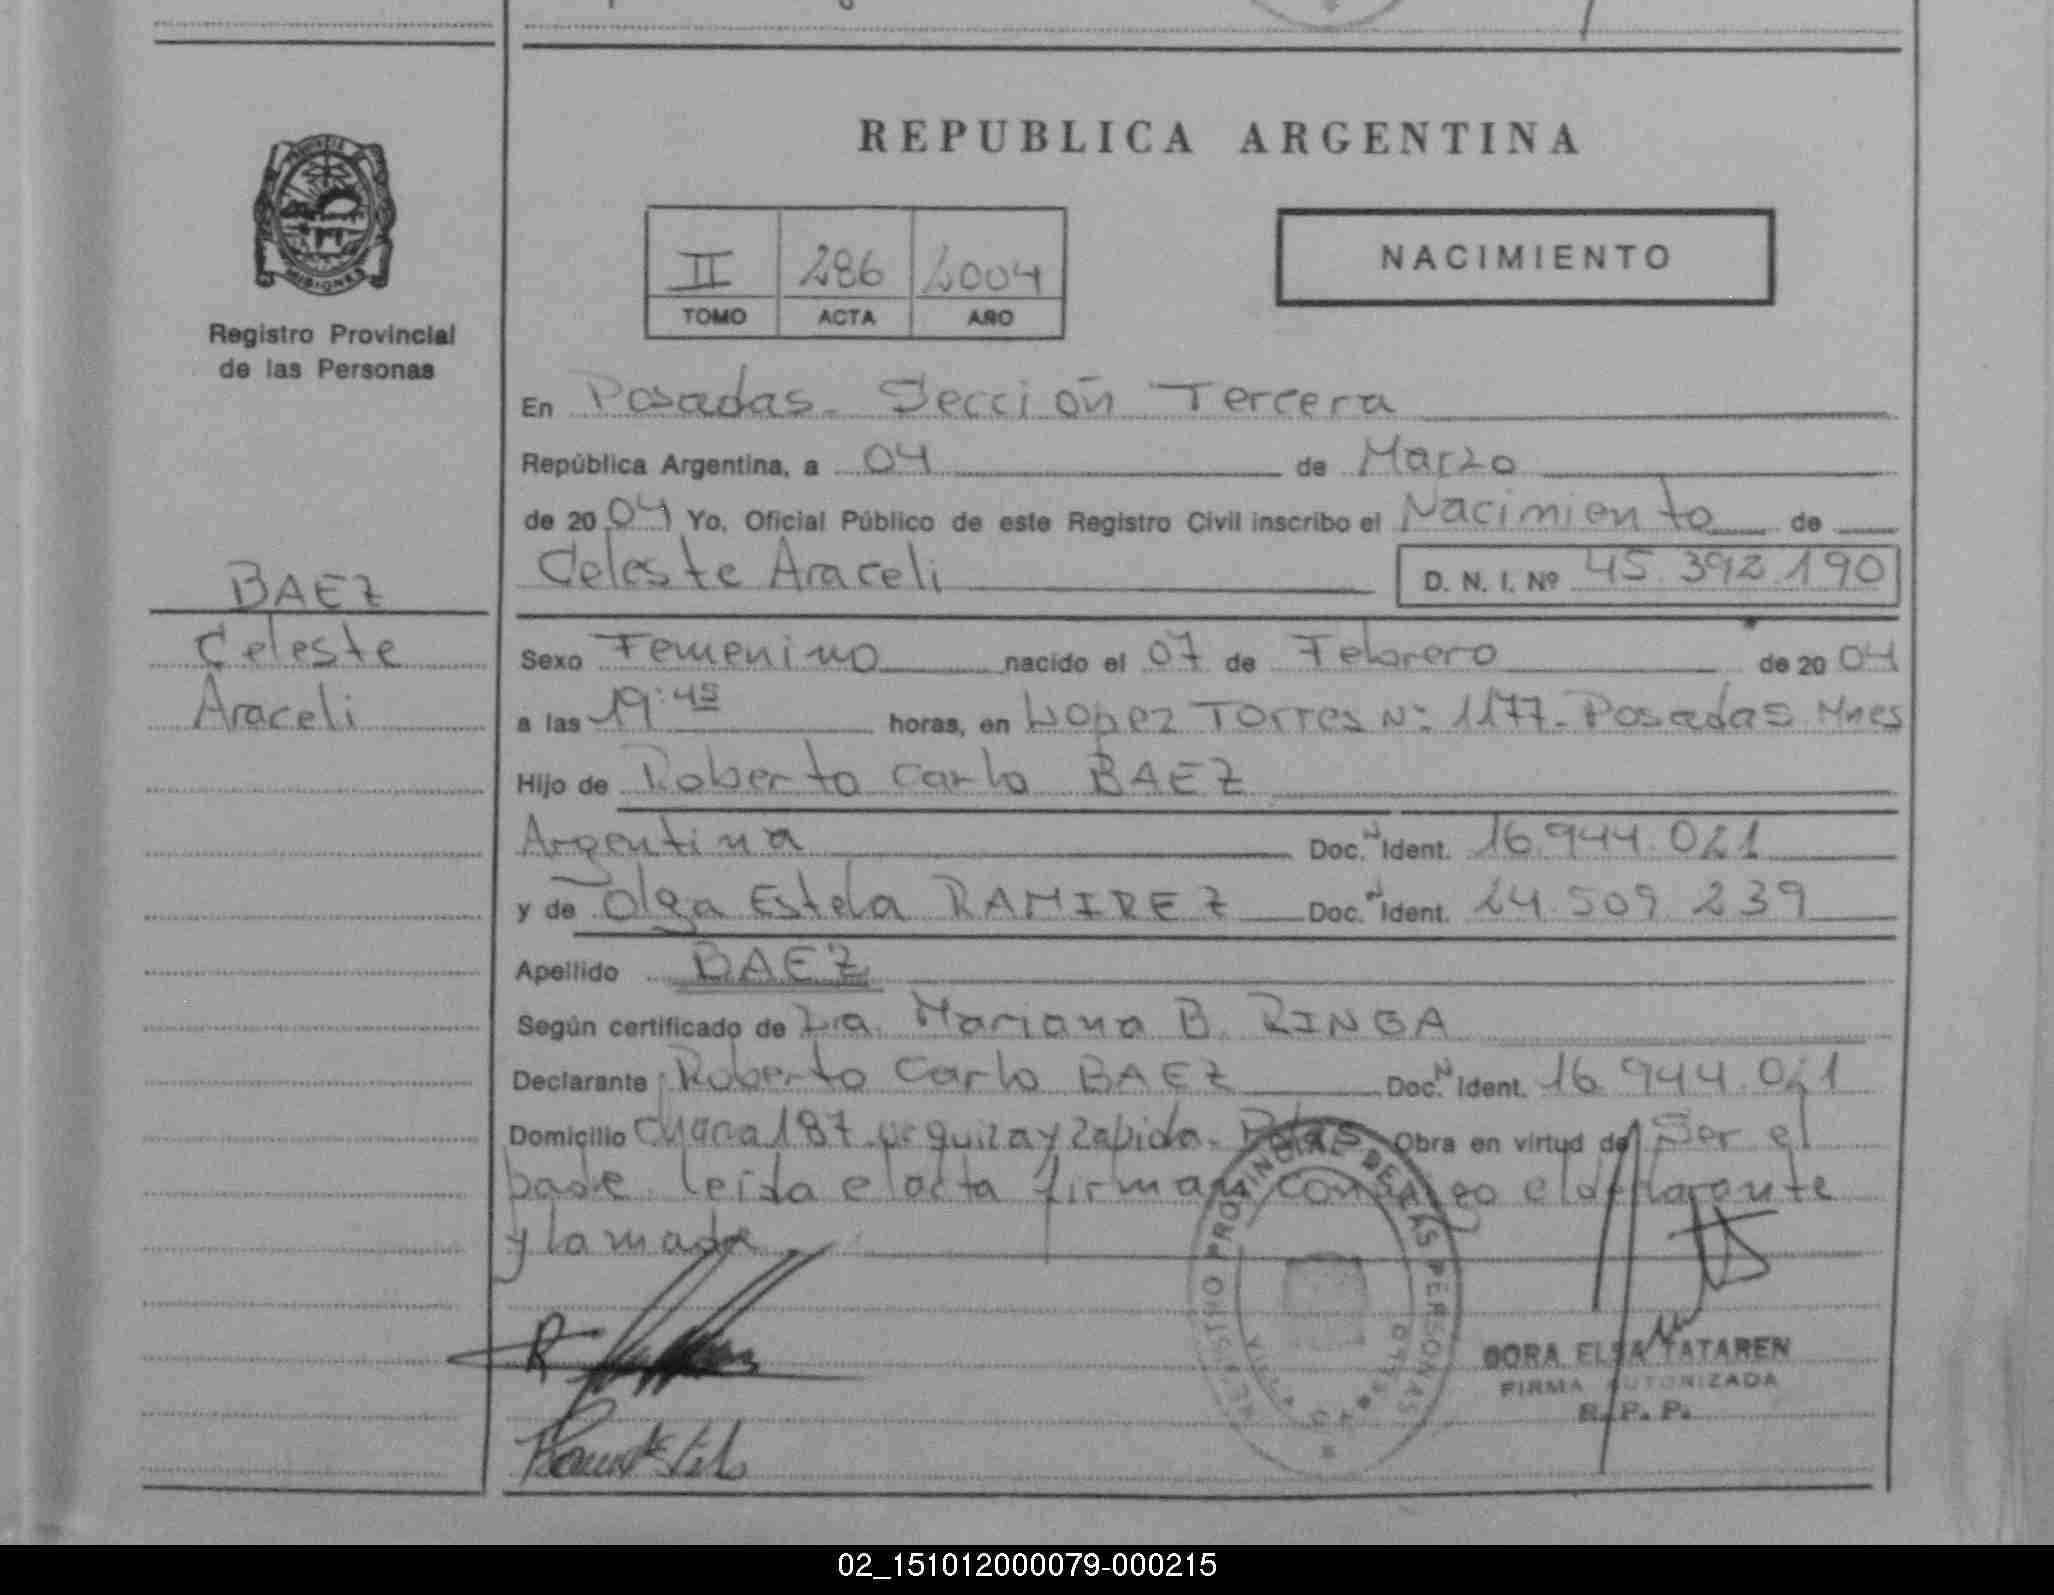 REPUBLICA ARGENTINA
PROVINCIA
MISIONES
Registro Provincial
de las Personas
II 286 2004
TOMO ACTA AÑO
NACIMIENTO
En Posadas - Sección Tercera
República Argentina, a 04 de Marzo
de 20 04 Yo, Oficial Público de este Registro Civil inscribo el Nacimiento de
Celeste Araceli D. N. I. Nº 45.392.190
BAEZ
Celeste
Araceli
Sexo Femenino nacido el 07 de Febrero de 20 04
a las 19:45 horas, en Lopez Torres Nº: 1177 - Posadas Mnes
Hijo de Roberto Carlo BAEZ
Argentina Doc. N Ident. 16.944.021
y de Olga Estela RAMIREZ Doc. N Ident. 24.509.239
Apellido BAEZ
Según certificado de Dra. Mariana B. RINGA
Declarante Roberto Carlo BAEZ Doc. N Ident. 16.944.021
Domicilio Chacra 187 Urquiza y Zapiola - Pdas Obra en virtud de Ser el
padre. Leída el acta firman conmigo el declarante
y la madre
REGISTRO PROVINCIAL DE LAS PERSONAS
DORA ELSA TATAREN
FIRMA AUTORIZADA
R. P. P.
02_151012000079-000215